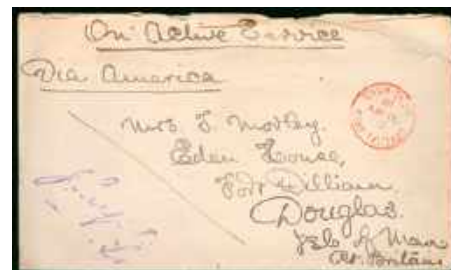 On Active Service
Via America
Mrs F. Motley.
Eden House,
Fort William.
Douglas.
Isle of Man
Gt. Britain